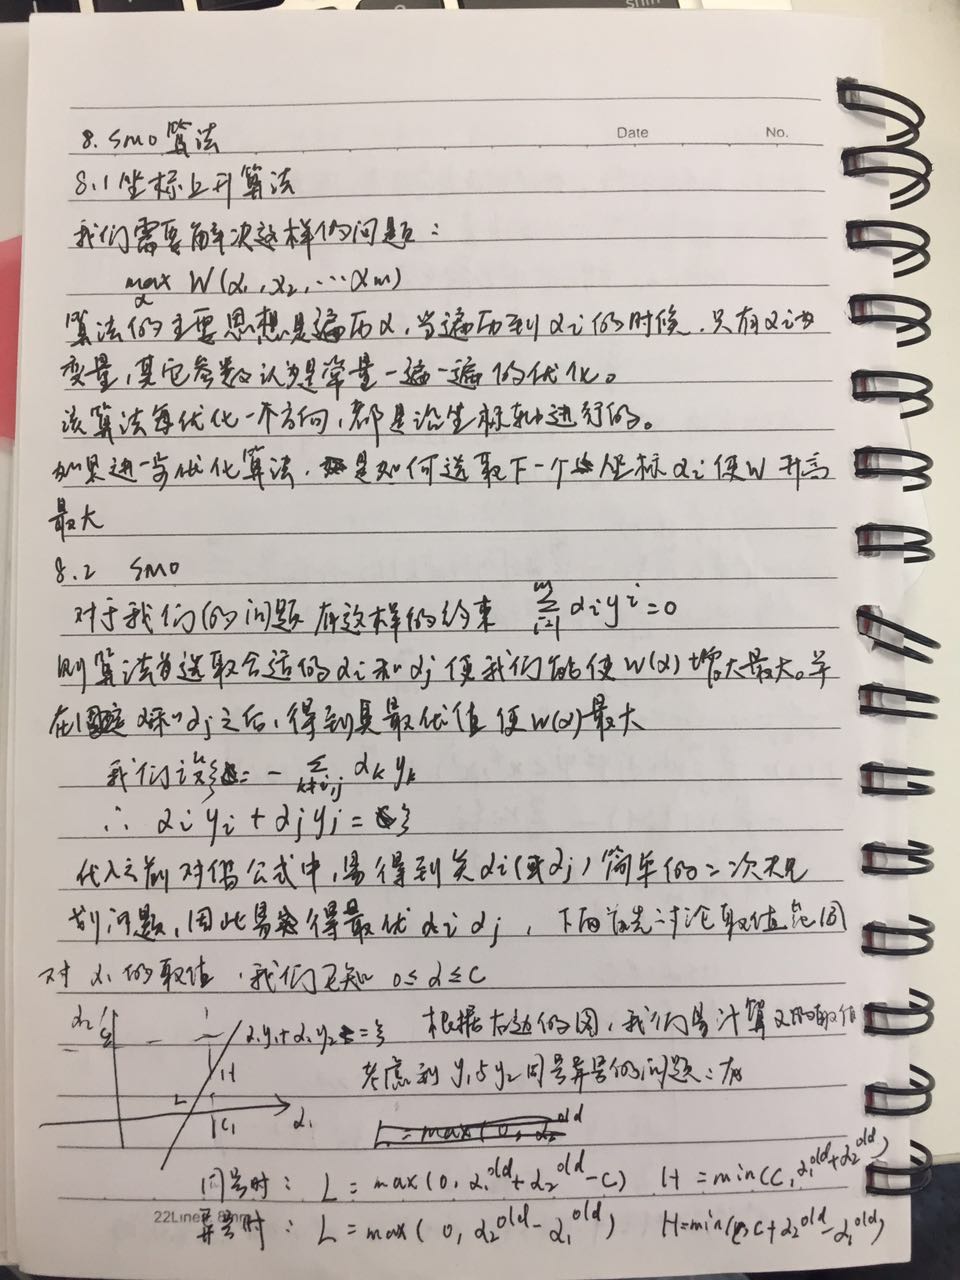 Date No.
8. SMO算法
8.1 坐标上升算法
我们需要解决这样的问题：
max W(α₁,α₂,…αm)
α
算法的主要思想是遍历α,当遍历到αi的时候,只有αi为
变量,其它参数认为是常量一遍一遍的优化。
该算法每优化一个方向,都是沿坐标轴进行的。
如果进一步优化算法,是如何选取下一个坐标αi使W升高
最大
8.2 SMO
对于我们的问题 有这样的约束 Σ_{i=1}^{m} αi y^i = 0
则算法首选取合适的αi和αj使我们能使W(α)增大最大。并
在固定αi和αj之后,得到其最优值使W(α)最大
我们设 ξ = - Σ_{k≠i,j} αk yk
∴ αi yi + αj yj = ξ
代入之前对偶公式中,易得到关αi(或αj)简单的二次规
划问题,因此易得最优αi αj, 下面首先讨论取值范围
对α₁的取值,我们已知 0≤α≤C
α₂ α₁y₁+α₂y₂=ξ 根据右边的图,我们易计算又取值
C H 考虑到y₁与y₂同号异号的问题：有
L C α₁
同号时： L = max(0, α₁^old+α₂^old-C) H = min(C, α₁^old+α₂^old)
22Lines 8mm
异号时： L = max(0, α₂^old-α₁^old) H=min(C, C+α₂^old-α₁^old)